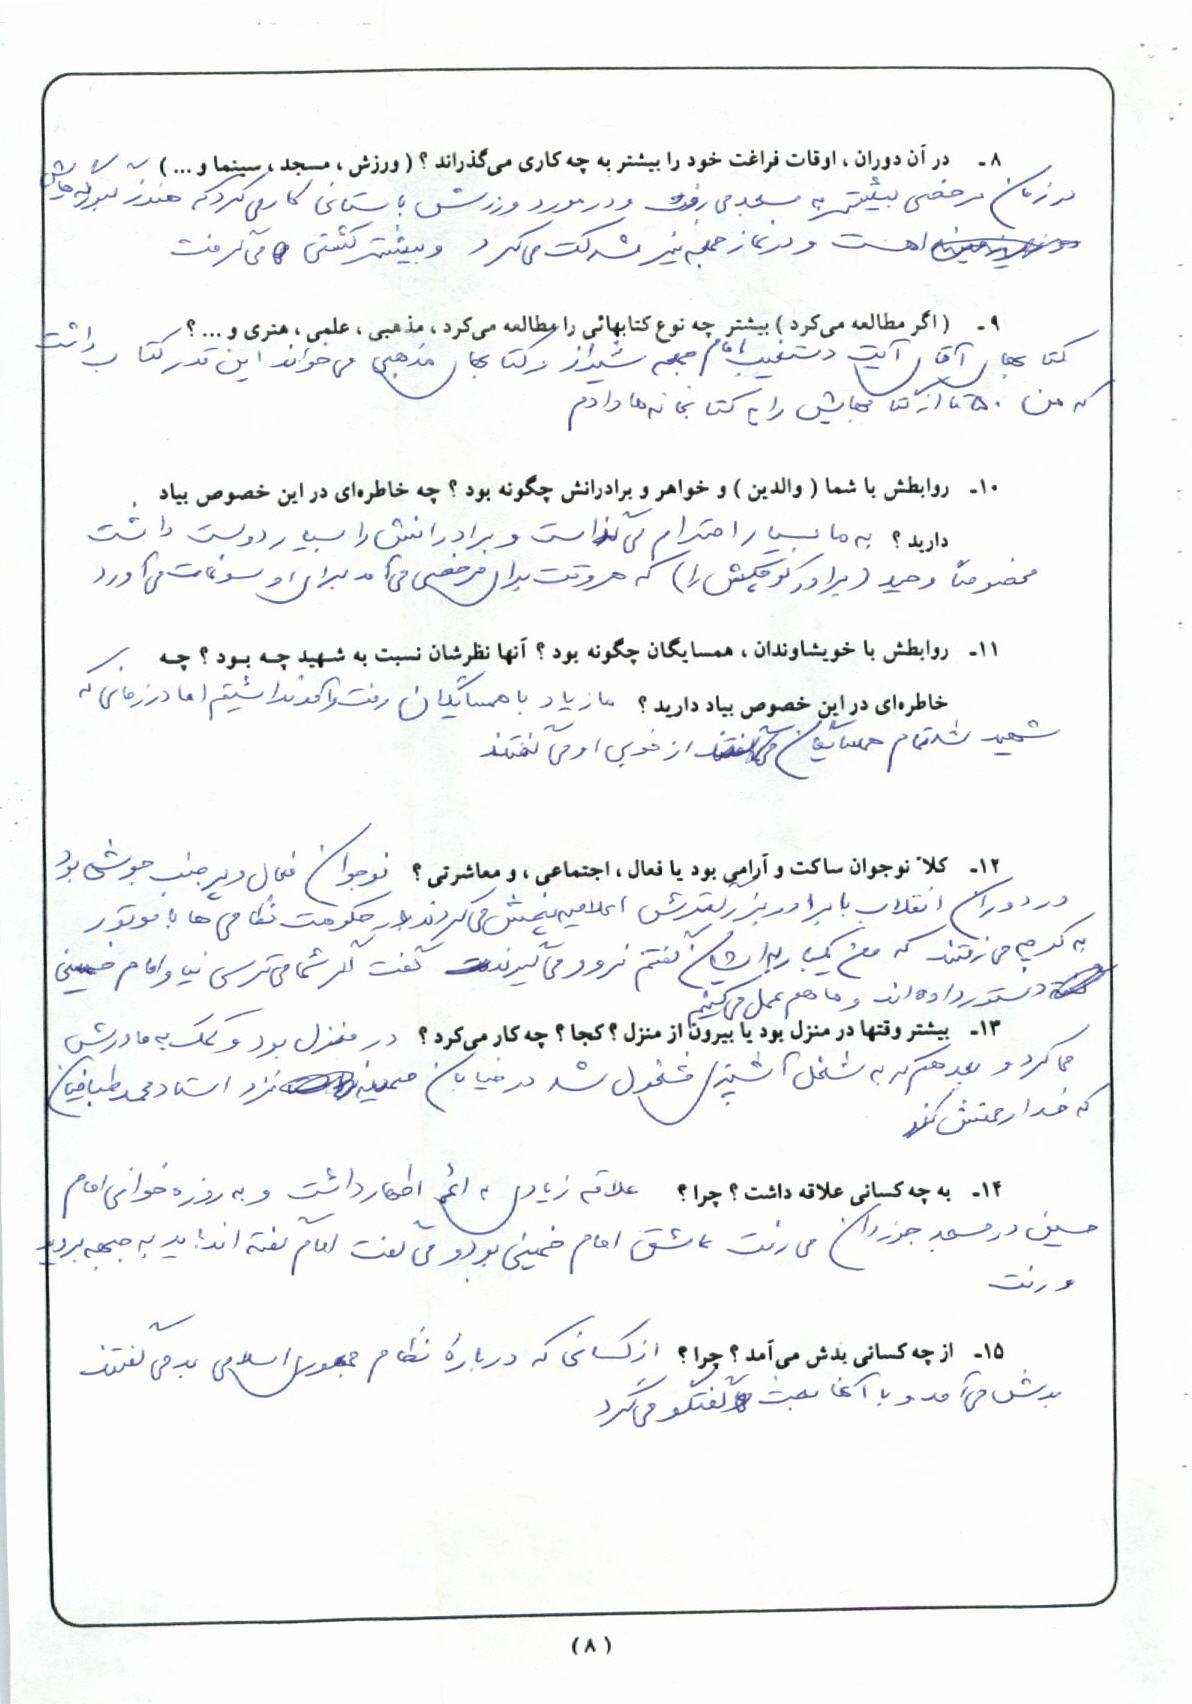 ۸ـ در آن دوران ، اوقات فراغت خود را بیشتر به چه کاری می‌گذراند ؟ ( ورزش ، مسجد ، سینما و ... )
در زمان مرخصی بیشتر به مسجد می رفت و در مورد ورزش باستانی کار می کرد که هنوز
است و در نماز جمعه نیز شرکت می کرد و بیشتر کشتی می گرفت
۹ـ ( اگر مطالعه می‌کرد ) بیشتر چه نوع کتابهائی را مطالعه می‌کرد ، مذهبی ، علمی ، هنری و ... ؟
کتابهای آقای آیت دستغیب امام جمعه شیراز و کتابهای مذهبی می خواند این قدر کتاب داشت
که من ۵۰ تا از کتابهایش را به کتابخانه ها دادم
۱۰ـ روابطش با شما ( والدین ) و خواهر و برادرانش چگونه بود ؟ چه خاطره‌ای در این خصوص بیاد
دارید ؟ به ما بسیار احترام می گذاست و برادرانش را بسیار دوست داشت
مخصوصاً وحید (برادر کوچکش را) که هر وقت برای مرخصی می آمد برای او سوغات می آورد
۱۱ـ روابطش با خویشاوندان ، همسایگان چگونه بود ؟ آنها نظرشان نسبت به شهید چه بود ؟ چه
خاطره‌ای در این خصوص بیاد دارید ؟ ما زیاد با همسایگان رفت و آمد نداشتیم اما در زمانی که
شهید شد تمام همسایگان از خوبی او می گفتند
۱۲ـ کلاً نوجوان ساکت و آرامی بود یا فعال ، اجتماعی ، و معاشرتی ؟ نوجوان فعال و پر جنب جوشی بود
در دوران انقلاب با برادر بزرگترش اعلامیه پخش می کردند در حکومت نظامی ها با موتور
به کرچه می رفتند که من یکبار به ایشان گفتم نرو می گیرند گفت اگر شما می ترسی نیا و امام خمینی
دستور داده اند و ما هم عمل می کنیم
۱۳ـ بیشتر وقتها در منزل بود یا بیرون از منزل ؟ کجا ؟ چه کار می‌کرد ؟ در منزل بود و کمک به مادرش
می کرد و بعد هم که به شغل آشپزی مشغول شد در خیابان نزد استاد محمد طباخیان
که خدا رحمتش کند
۱۴ـ به چه کسانی علاقه داشت ؟ چرا ؟ علاقه زیادی به ائمه اظهار داشت و به روزه خوانی امام
حسین در مسجد جوزدان می رفت عاشق امام خمینی بود و می گفت امام گفته اند باید به جبهه بروید
و رفت
۱۵ـ از چه کسانی بدش می‌آمد ؟ چرا ؟ از کسانی که دربارهٔ نظام جمهوری اسلامی بد می گفتند
بدش می آمد و با آنها بحث گفتگو می کرد
( ۸ )